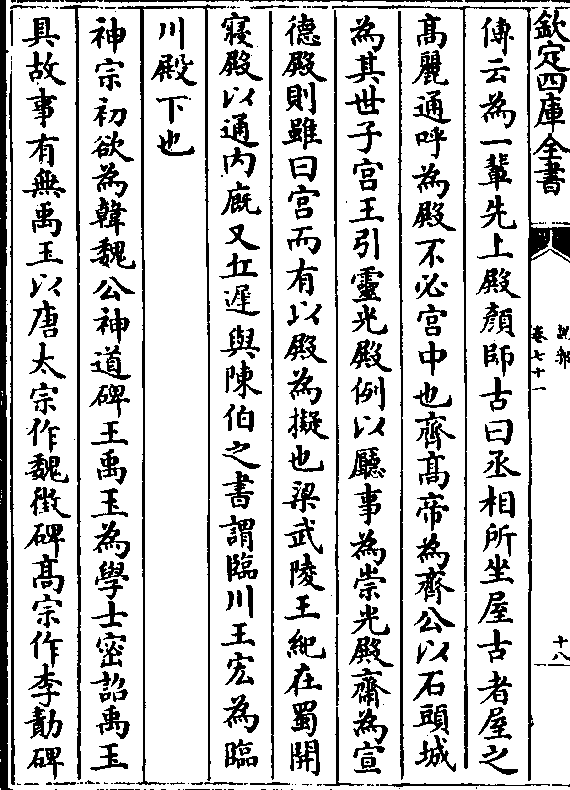 欽定四庫全書
說郛
卷七十一
十八
傳云為一輩先上殿顏師古曰丞相所坐屋古者屋之
髙麗通呼為殿不必宫中也齊髙帝為齊公以石頭城
為其世子宫王引靈光殿例以廳事為崇光殿齋為宣
德殿則雖曰宫而有以殿為擬也梁武陵王紀在蜀開
寢殿以通内廐又丘遲與陳伯之書謂臨川王宏為臨
川殿下也
神宗初欲為韓魏公神道碑王禹玉為學士密詔禹玉
具故事有無禹玉以唐太宗作魏徴碑髙宗作李勣碑